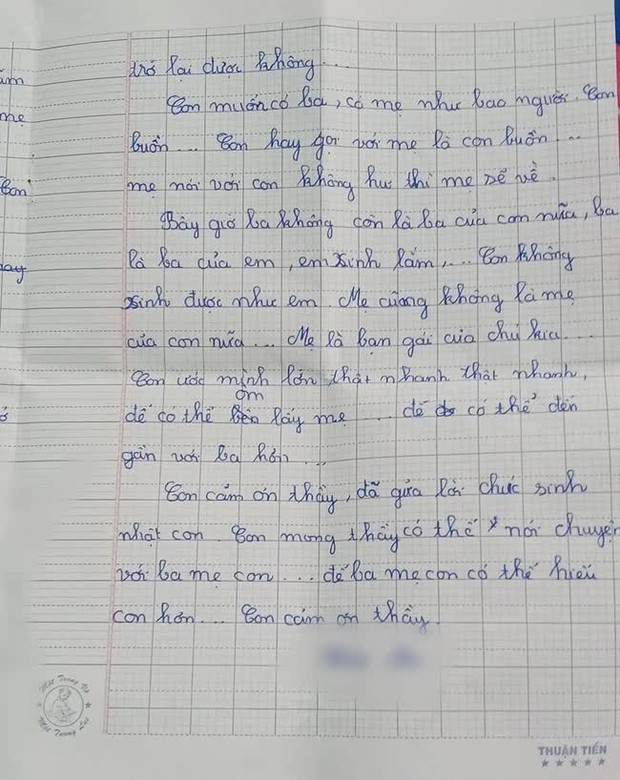 ăm
mẹ
Con
hay
ở
trở lại được không...
Con muốn có ba, có mẹ như bao người. Con
buồn... Con hay gọi với mẹ là con buồn...
mẹ nói với con không hư thì mẹ sẽ về.
Bây giờ ba không còn là ba của con nữa, ba
là ba của em, em xinh lắm,... Con không
xinh được như em. Mẹ cũng không là mẹ
của con nữa... Mẹ là bạn gái của chú kia...
Con ước mình lớn thật nhanh thật nhanh,
ôm
để có thể lấy mẹ... để có thể đến
gần với ba hơn...
Con cảm ơn thầy, đã gửa lời chúc sinh
nhật con. Con mong thầy có thể nói chuyện
với ba mẹ con... để ba mẹ con có thể hiểu
con hơn... Con cảm ơn thầy.
Một Trang Vở
Một Tương Lai
THUẬN TIẾN